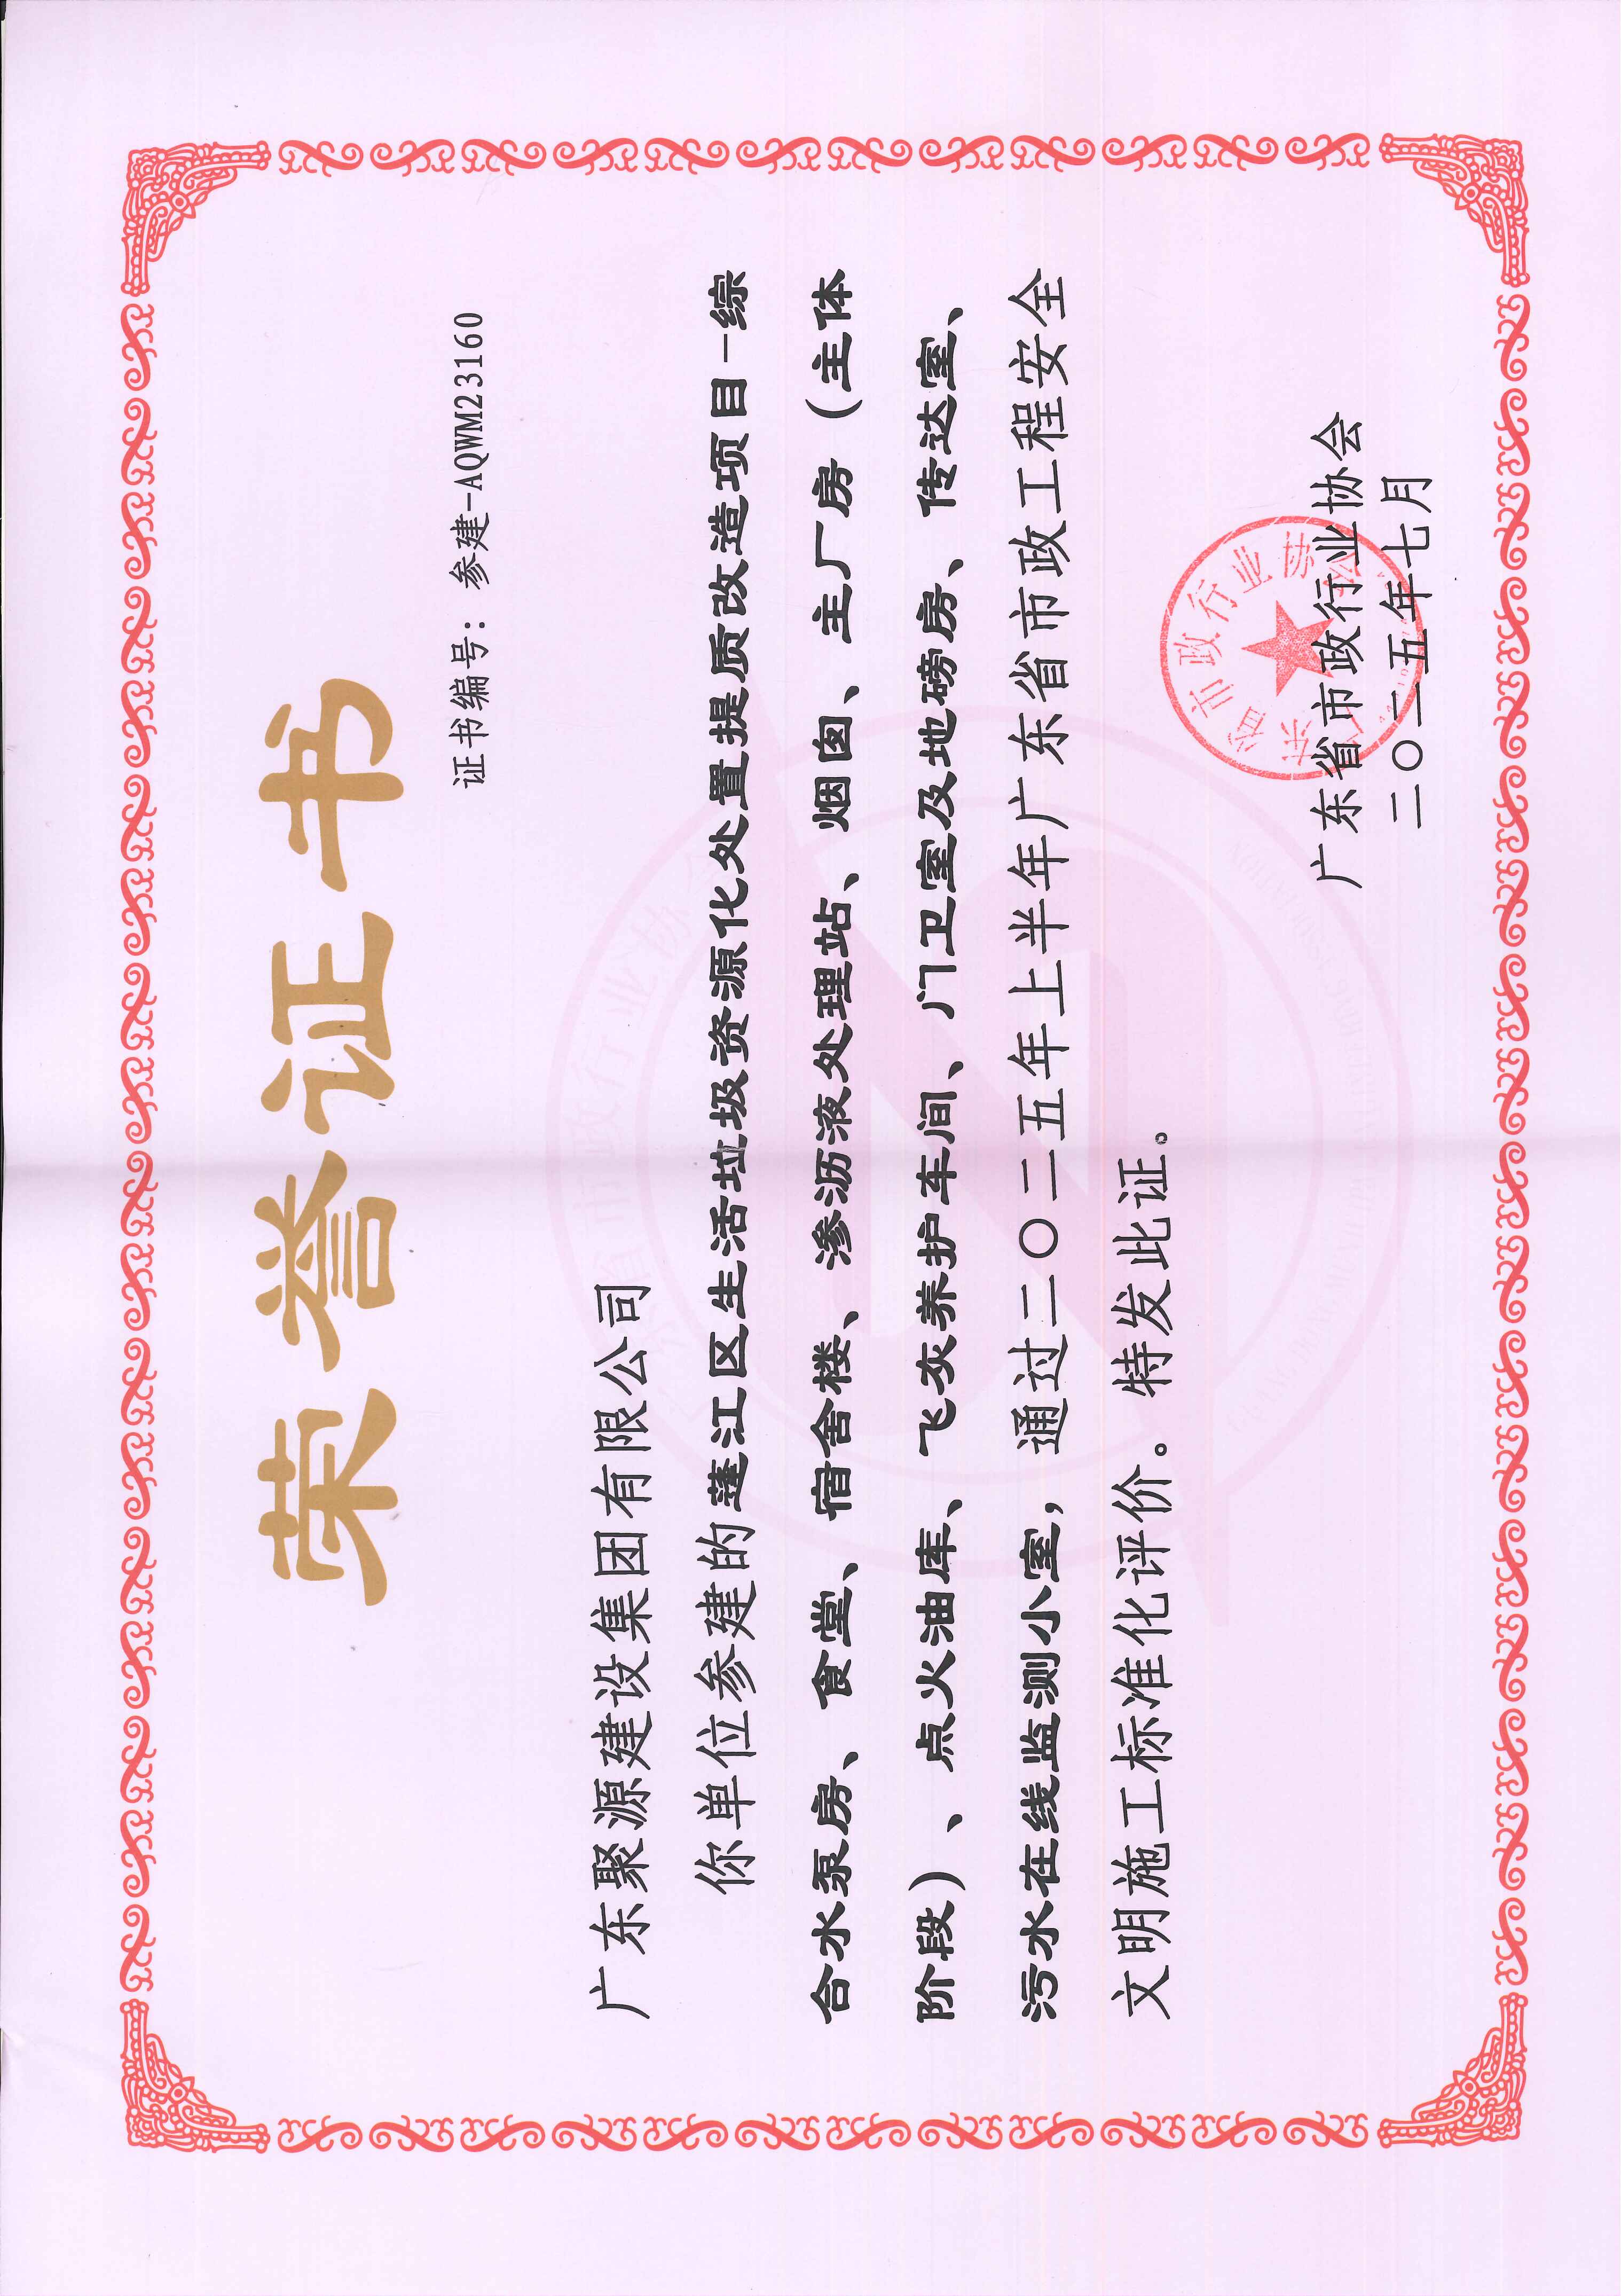 荣誉证书
证书编号：参建-AQWM23160
广东聚源建设集团有限公司
你单位参建的蓬江区生活垃圾资源化处置提质改造项目-综
合水泵房、食堂、宿舍楼、渗沥液处理站、烟囱、主厂房（主体
阶段）、点火油库、飞灰养护车间、门卫室及地磅房、传达室、
污水在线监测小室，通过二〇二五年上半年广东省市政工程安全
文明施工标准化评价。特发此证。
广东省市政行业协会
二〇二五年七月